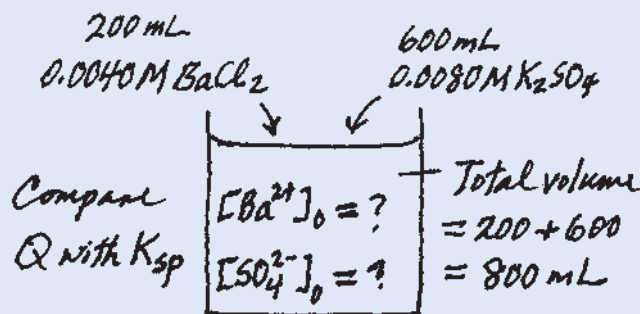 200 mL
0.0040 M BaCl₂
600 mL
0.0080 M K₂SO₄
Compare
Q with Ksp
[Ba²⁺]₀ = ?
[SO₄²⁻]₀ = ?
Total volume
= 200 + 600
= 800 mL